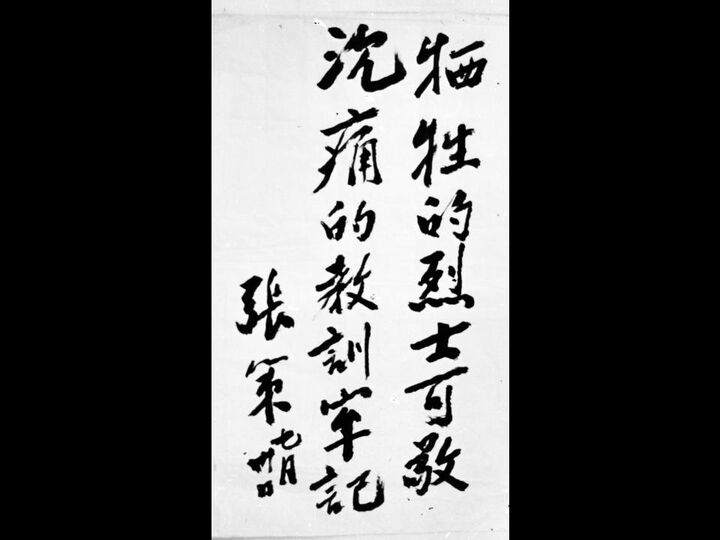 牺牲的烈士可敬
沈痛的教訓牢記
張策
七月
卅日